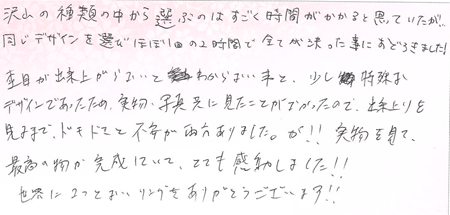 沢山の種類の中から選ぶのはすごく時間がかかると思っていたが、
同じデザインを選びほぼ1回の2時間で全てが決った事におどろきました!
当日が出来上がらないとわからない事と、少し特殊な
デザインであったため、実物・写真共に見たことがなかったので、出来上りを
見るまで、ドキドキと不安が両方ありました。が!! 実物を見て、
最高の物が完成していて、とても感動しました!!
世界に2つとないリングをありがとうございます!!